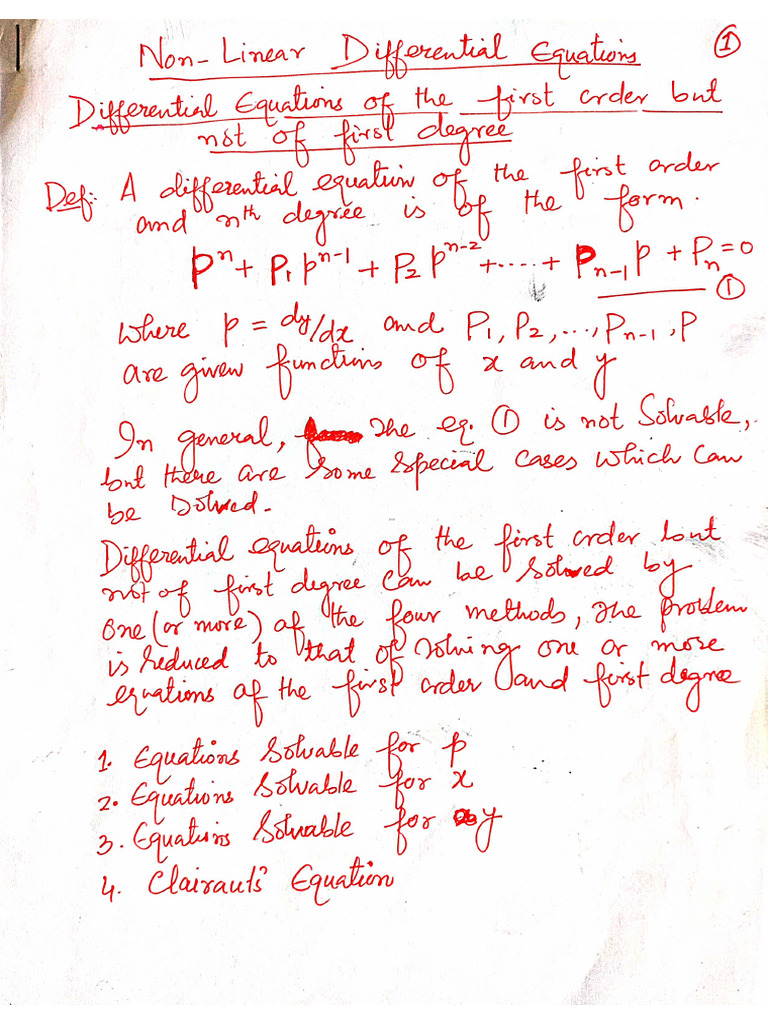 Non-Linear Differential Equations ①
Differential Equations of the first order but
not of first degree
Def: A differential equation of the first order
and nth degree is of the form.
pⁿ + P₁ pⁿ⁻¹ + P₂ pⁿ⁻² + ..... + Pₙ₋₁ p + Pₙ = 0
①
where p = dy/dx and P₁, P₂, ..., Pₙ₋₁, P
are given functions of x and y
In general, The eq. ① is not Solvable,
but there are some special cases which can
be solved.
Differential equations of the first order but
not of first degree can be solved by
one (or more) of the four methods, The problem
is reduced to that of solving one or more
equations of the first order and first degree
1. Equations Solvable for p
2. Equations Solvable for x
3. Equations Solvable for y
4. Clairaut's Equation